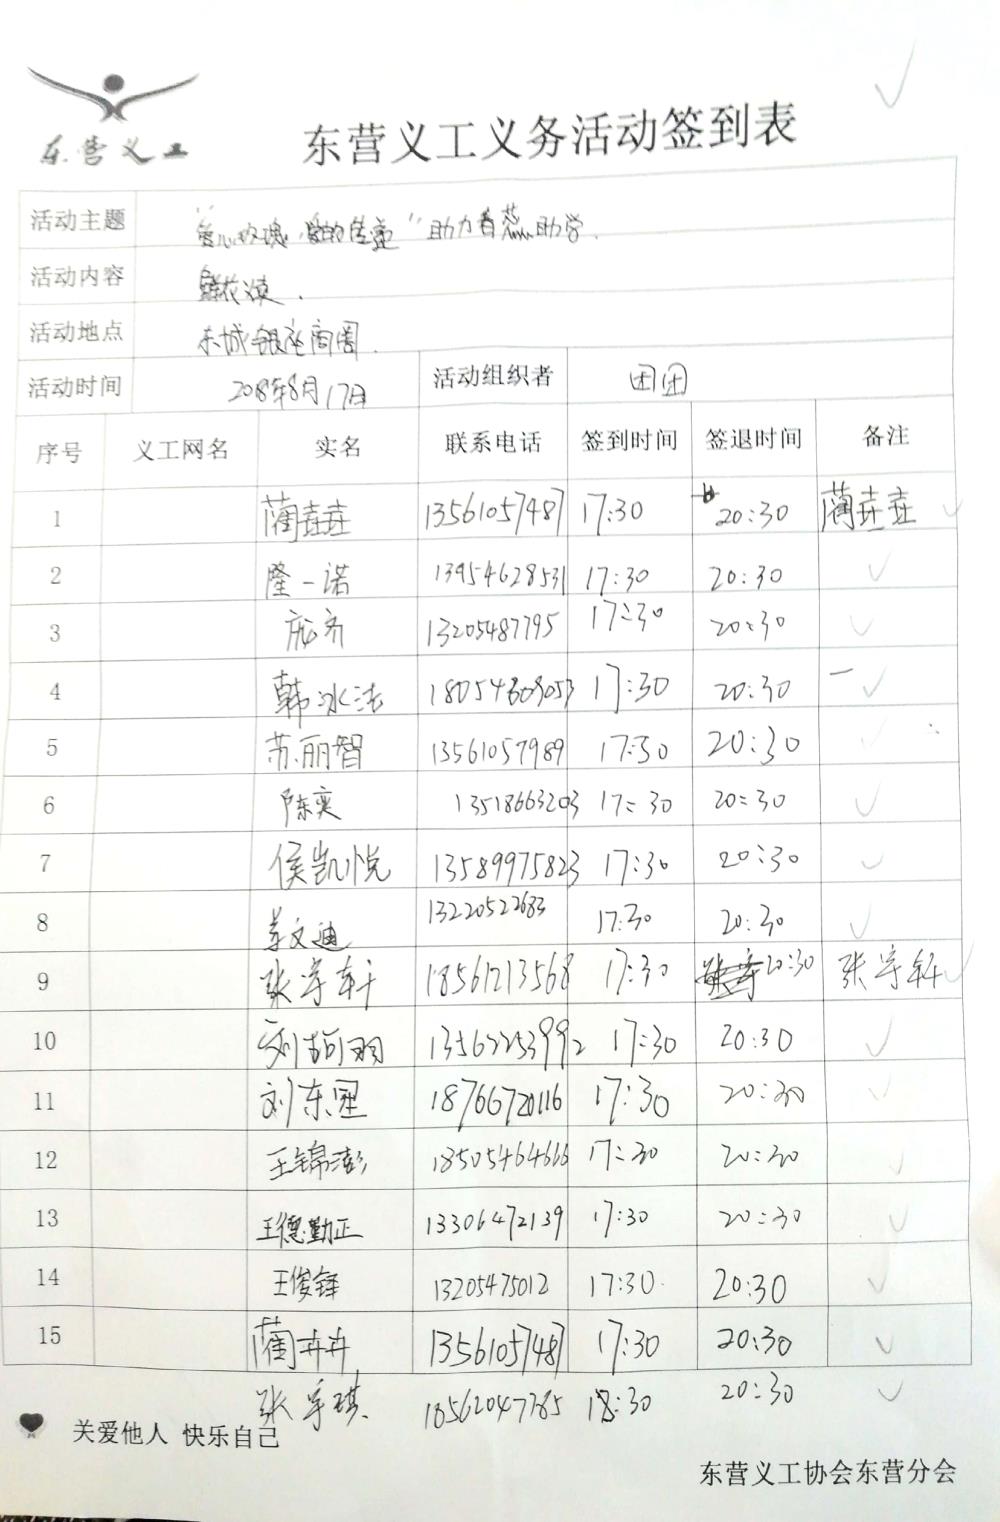 东营义工
东营义工义务活动签到表
活动主题 "爱心玫瑰·爱的传递"助力春蕊助学.
活动内容 鲜花义卖.
活动地点 东城银座商圈.
活动时间 2018年8月17日 活动组织者 团团
序号 义工网名 实名 联系电话 签到时间 签退时间 备注
1 蔺垚垚 13561057487 17:30 20:30 蔺垚垚
2 隆一诺 13954628531 17:30 20:30
3 庞齐 13205487795 17:30 20:30
4 韩冰洁 18054609053 17:30 20:30
5 苏丽智 13561057989 17:30 20:30
6 陈奕 13518663203 17:30 20:30
7 侯凯悦 13589975823 17:30 20:30
8 文迪 13220522683 17:30 20:30
9 张宇轩 18561213568 17:30 20:30 张宇轩
10 刘 羽 13562253992 17:30 20:30
11 刘东 18766720116 17:30 20:30
12 王锦澎 18505464666 17:30 20:30
13 王德勤正 13306472139 17:30 20:30
14 王俊锋 13205475012 17:30 20:30
15 蔺卉卉 13561057487 17:30 20:30
张宇琪 18562047785 18:30 20:30
关爱他人 快乐自己
东营义工协会东营分会